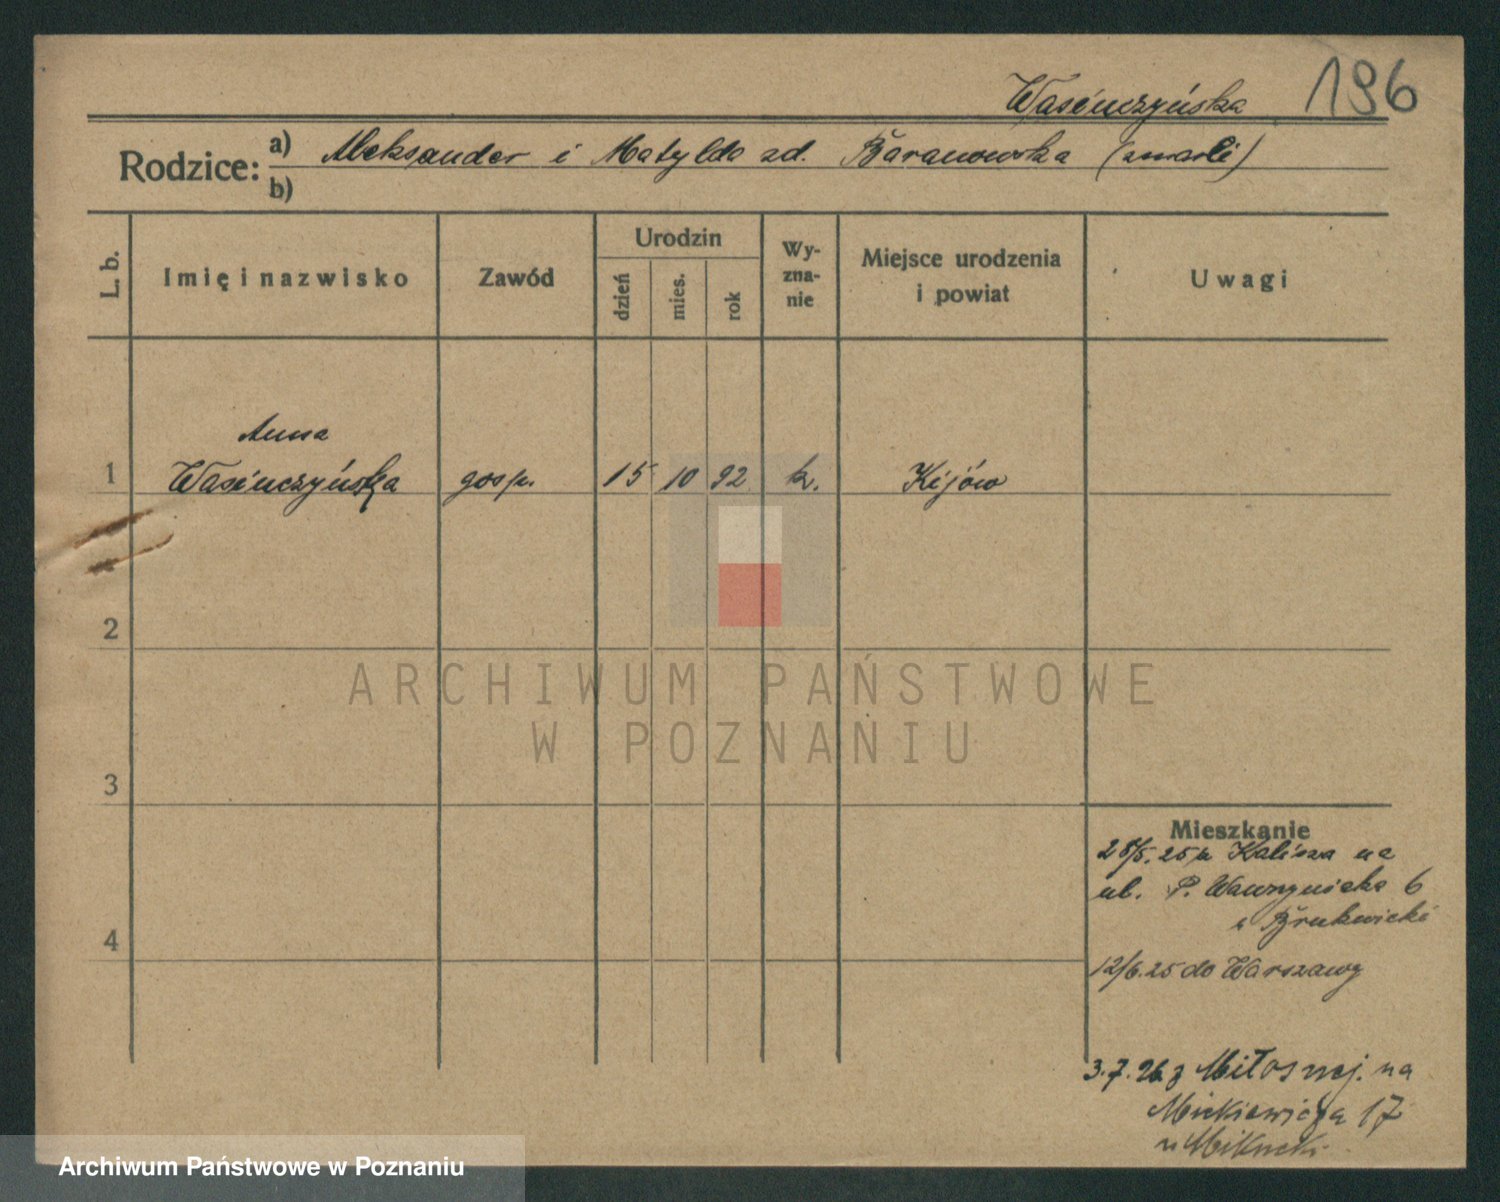 Wasiuczyńska 196
Rodzice: a) Aleksander i Matylda zd. Baranowska (zmarli)
b)
L. b.
Imię i nazwisko
Zawód
Urodzin
dzień
mies.
rok
Wy-
zna-
nie
Miejsce urodzenia
i powiat
Uwagi
Anna
1 Wasiuczyńska gosp. 15 10 92 k. Kijów
2
ARCHIWUM PAŃSTWOWE
W POZNANIU
3
4
Mieszkanie
28/5.25 z Kalisza na
ul. P. Wawrzyniaka 6
Brukwicki
12/6.25 do Warszawy
3.7.26 z Miłosnej. na
Mickiewicza 17
u
Archiwum Państwowe w Poznaniu